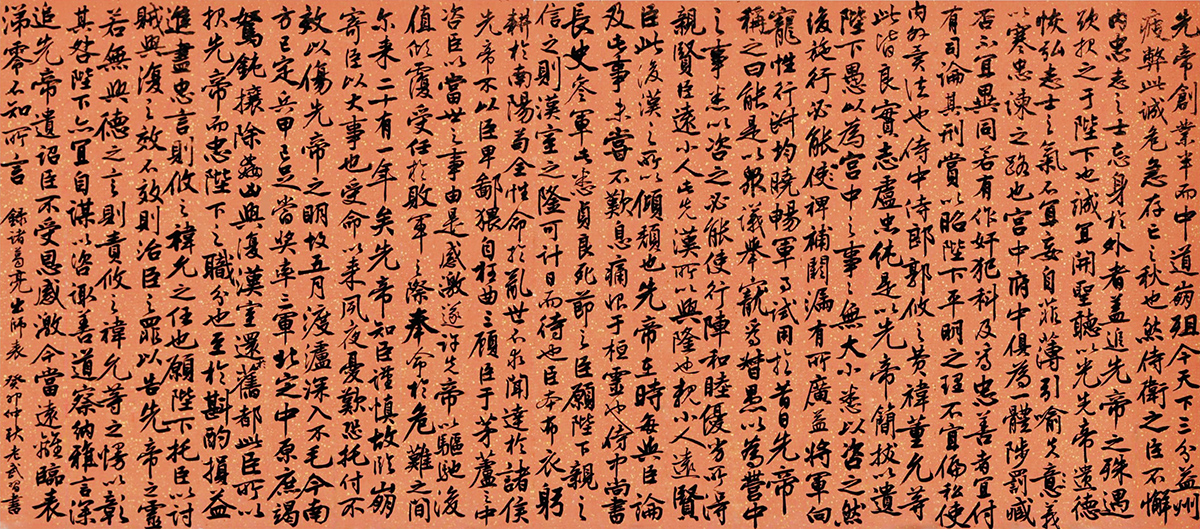 先帝創業半而中道崩殂今天下三分益州
疲弊此誠危急存亡之秋也然侍衛之臣不懈
內忠志之士忘身於外者蓋追先帝之殊遇
欲報之于陛下也誠宜開聖聽以光先帝遺德
恢弘志士之氣不宜妄自菲薄引喻失義
以塞忠諫之路也宮中府中俱為一體陟罰臧
否不宜異同若有作奸犯科及為忠善者宜付
有司論其刑賞以昭陛下平明之理不宜偏私使
內外異法也侍中侍郎郭攸之費禕董允等
此皆良實志慮忠純是以先帝簡拔以遺
陛下愚以為宮中之事事無大小悉以咨之然
後施行必能使裨補闕漏有所廣益將軍向
寵性行淑均曉暢軍事試用於昔日先帝
稱之曰能是以眾議舉寵為督愚以為營中
之事悉以咨之必能使行陣和睦優劣所得
親賢臣遠小人此先漢所以興隆也親小人遠賢
臣此後漢之所傾頹也先帝在時每與臣論
及此事未嘗不歎息痛恨于桓靈也侍中尚書
長史參軍此悉貞良死節之臣願陛下親之
信之則漢室之隆可計日而待也臣本布衣躬
耕於南陽苟全性命於亂世不求聞達於諸侯
先帝不以臣卑鄙猥自枉曲三顧臣于茅廬之中
咨臣以當世之事由是感激遂許先帝以驅馳後
值傾覆受任於敗軍之際奉命於危難之間
尔来二十有一年矣先帝知臣謹慎故臨崩
寄臣以大事也受命以来夙夜憂歎恐托付不
效以傷先帝之明故五月渡瀘深入不毛今南
方已定兵甲已足當奖率三軍北定中原庶竭
駑鈍攘除姦凶興復漢室還于舊都此臣所以
报先帝而忠陛下之職分也至於斟酌損益
進盡忠言則攸之禕允之任也願陛下托臣以討
賊興復之效不效則治臣之罪以告先帝之靈
若無興德之言則責攸之禕允等之慢以彰
其咎陛下亦宜自謀以咨諏善道察納雅言深
追先帝遺詔臣不受恩感激今當遠離臨表
涕零不知所言 錄諸葛亮出師表 癸卯仲秋老武習書